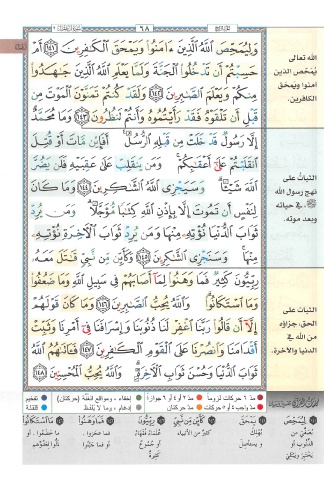 ٦٨
وَلِيُمَحِّصَ ٱللَّهُ ٱلَّذِينَ ءَامَنُوا۟ وَيَمْحَقَ ٱلْكَـٰفِرِينَ ١٤١ أَمْ
حَسِبْتُمْ أَن تَدْخُلُوا۟ ٱلْجَنَّةَ وَلَمَّا يَعْلَمِ ٱللَّهُ ٱلَّذِينَ جَـٰهَدُوا۟
مِنكُمْ وَيَعْلَمَ ٱلصَّـٰبِرِينَ ١٤٢ وَلَقَدْ كُنتُمْ تَمَنَّوْنَ ٱلْمَوْتَ مِن
قَبْلِ أَن تَلْقَوْهُ فَقَدْ رَأَيْتُمُوهُ وَأَنتُمْ تَنظُرُونَ ١٤٣ وَمَا مُحَمَّدٌ
إِلَّا رَسُولٌ قَدْ خَلَتْ مِن قَبْلِهِ ٱلرُّسُلُ ۚ أَفَإِي۟ن مَّاتَ أَوْ قُتِلَ
ٱنقَلَبْتُمْ عَلَىٰٓ أَعْقَـٰبِكُمْ ۚ وَمَن يَنقَلِبْ عَلَىٰ عَقِبَيْهِ فَلَن يَضُرَّ
ٱللَّهَ شَيْـًٔا ۗ وَسَيَجْزِى ٱللَّهُ ٱلشَّـٰكِرِينَ ١٤٤ وَمَا كَانَ
لِنَفْسٍ أَن تَمُوتَ إِلَّا بِإِذْنِ ٱللَّهِ كِتَـٰبًا مُّؤَجَّلًا ۗ وَمَن يُرِدْ
ثَوَابَ ٱلدُّنْيَا نُؤْتِهِۦ مِنْهَا وَمَن يُرِدْ ثَوَابَ ٱلْـَٔاخِرَةِ نُؤْتِهِۦ
مِنْهَا ۚ وَسَنَجْزِى ٱلشَّـٰكِرِينَ ١٤٥ وَكَأَيِّن مِّن نَّبِىٍّ قَـٰتَلَ مَعَهُۥ
رِبِّيُّونَ كَثِيرٌ فَمَا وَهَنُوا۟ لِمَآ أَصَابَهُمْ فِى سَبِيلِ ٱللَّهِ وَمَا ضَعُفُوا۟
وَمَا ٱسْتَكَانُوا۟ ۗ وَٱللَّهُ يُحِبُّ ٱلصَّـٰبِرِينَ ١٤٦ وَمَا كَانَ قَوْلَهُمْ
إِلَّآ أَن قَالُوا۟ رَبَّنَا ٱغْفِرْ لَنَا ذُنُوبَنَا وَإِسْرَافَنَا فِىٓ أَمْرِنَا وَثَبِّتْ
أَقْدَامَنَا وَٱنصُرْنَا عَلَى ٱلْقَوْمِ ٱلْكَـٰفِرِينَ ١٤٧ فَـَٔاتَىٰهُمُ ٱللَّهُ
ثَوَابَ ٱلدُّنْيَا وَحُسْنَ ثَوَابِ ٱلْـَٔاخِرَةِ ۗ وَٱللَّهُ يُحِبُّ ٱلْمُحْسِنِينَ ١٤٨
الله تعالى
يُمَحّص الذين
آمنوا ويمحق
الكافرين.
الثبات على
نهج رسول الله
ﷺ، في حياته
وبعد موته.
الثبات على
الحق، جزاؤه
من الله في
الدنيا والآخرة.
مدّ ٦ حركات لزوماً
مدّ ٢ أو ٤ أو ٦ جوازاً
إخفاء، ومواقع الغنّة (حركتان)
تفخيم
مدّ واجب ٤ أو ٥ حركات
مدّ حركتان
إدغام، وما لا يُلفظ
قلقلة
لِيُمَحِّصَ
يَمْحَقَ
كَأَيِّن مِّن نَّبِيٍّ
رِبِّيُّونَ
فَمَا وَهَنُوا
مَا اسْتَكَانُوا